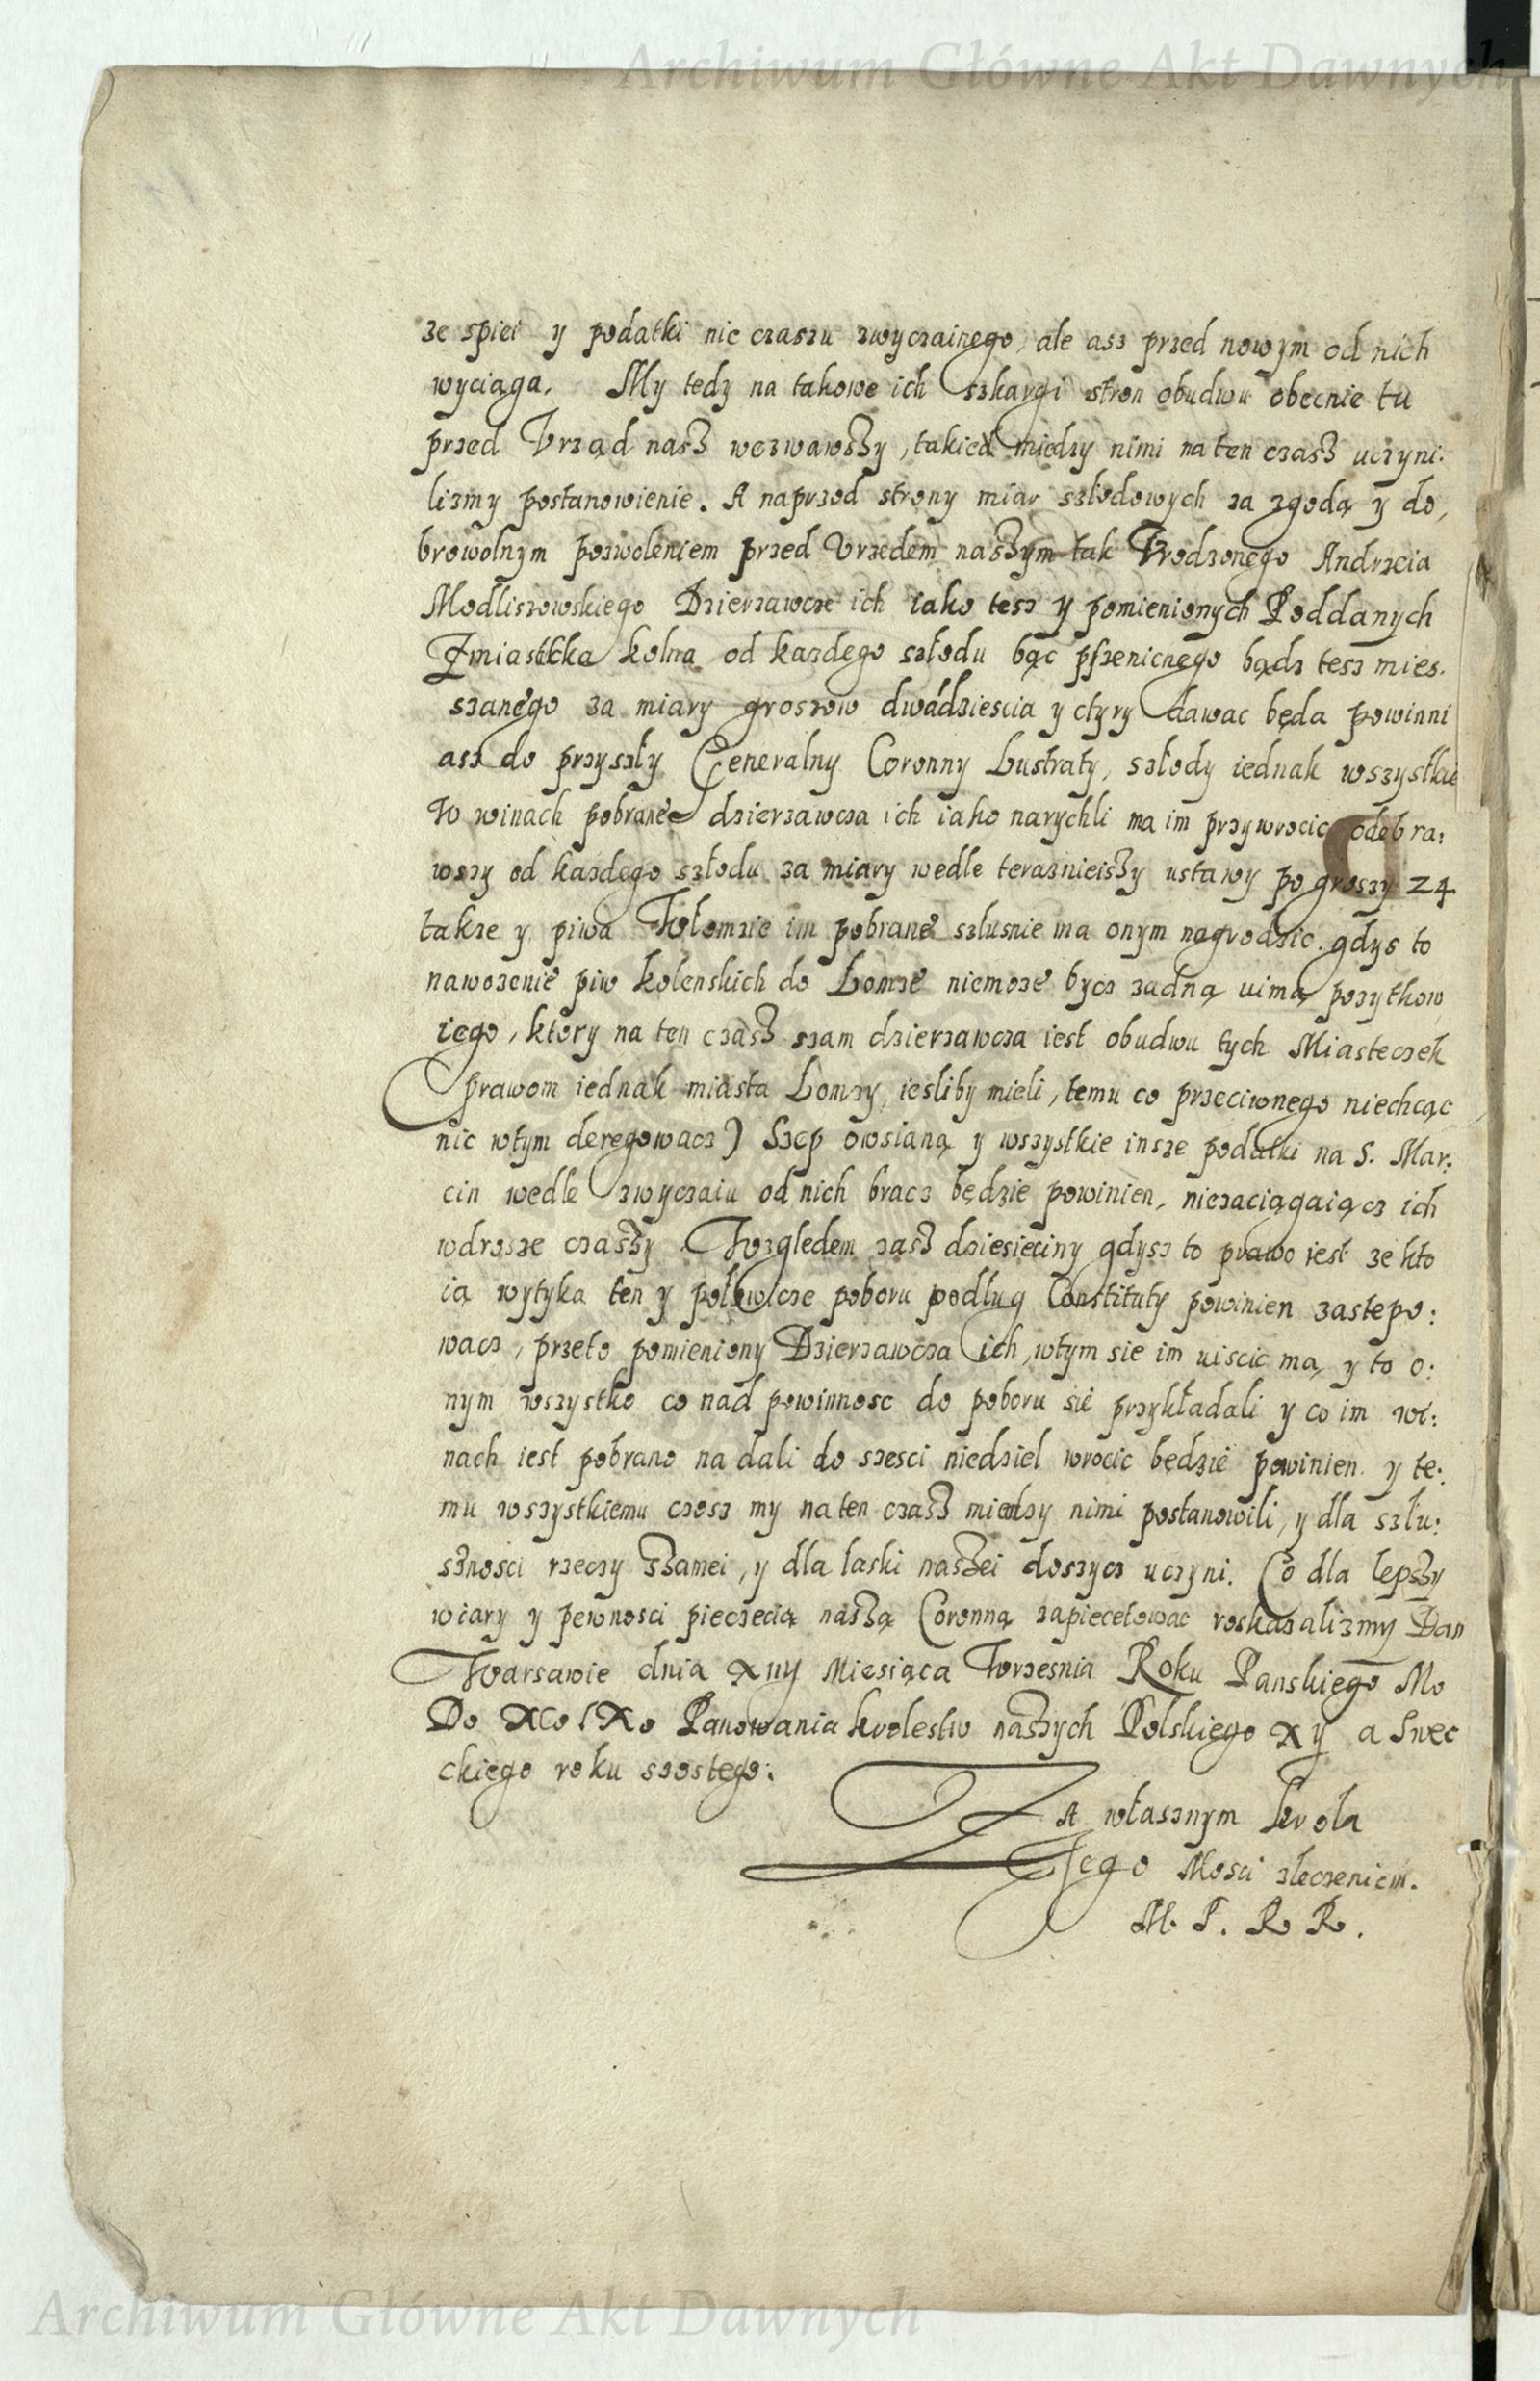 Archiwum Główne Akt Dawnych
ze spiei y podatki nie czaszu zwyczainego, ale asz przed nowym od nich
wyciąga. My tedy na takowe ich szkargi stron obudwu obecnie tu
przed Vrząd nasz wezwawszy, takied miedzy nimi na ten czasz uczyni.
lizmy postanowienie. A naprzod strony miar szłodowych za zgodą y do,
browolnym pozwoleniem przed Vrzedem naszym tak Vrodzonego Andrzeia
Modliszowskiego Dzierzawcze ich iako tesz y pomienionych Poddanych
Zmiastecka kolna od kazdego szłodu bąc pszenicnego bądz tesz mies.
szanego za miary groszow dwadziescia y ctyry dawac będa powinni
asz do przyszły Generalny Coronny Lustraty, szłody iednak wszystkie
W winach pobrane dzierzawcza ich iako narychli ma im przywrocic odebra:
wszy od kazdego szłodu za miary wedle teraznieiszy ustawy po groszy 24
takze y piwa Włomzie im pobrane szlusnie ma onym nagrodzic. gdys to
nawozenie piw kolenskich do Lomze niemoze bycz zadną uimą pozytkow
iego, ktory na ten czasz szam dzierzawcza iest obudwu tych Miasteczek
(prawom iednak miasta Lomzy, iesliby mieli, temu co przeciwnego niechcąc
nic wtym deregowacz) Szep owsianą y wszystkie insze podatki na S. Mar:
cin wedle zwyczaiu od nich bracz będzie powinien, niezaciągaiącz ich
wdrozsze czaszy. Wzgledem zasz dziesieciny gdysz to prawo iest ze kto
ią wytyka ten y połowicze poboru podług Constituty powinien zastepo:
wacz, przeto pomieniony Dzierzawcza ich, wtym sie im uiscic ma, y to o:
nym wszystko co nad powinnosc do poboru sie przykładali y co im wi:
nach iest pobrano na dali do szesci niedziel wrocic będzie powinien. y te:
mu wszystkiemu czosz my na ten czasz miedzy nimi postanowili, y dla szlu:
sznosci rzeczy szamei, y dla laski naszei doszycz uczyni. Co dla lepszy
wiary y pewnosci pieczecią naszą Coronną zapiecetowac roskazalizmy Dan
Warsawie dnia XIIIJ Miesiąca Wrzesnia Roku Panskiego Mo
Do XCo IXo Panowania krolestw naszych Polskiego XIJ a Swec
ckiego roku szostego:
ZA własznym krola
Jego Mosci zleczeniem.
M. P. R R.
Archiwum Główne Akt Dawnych